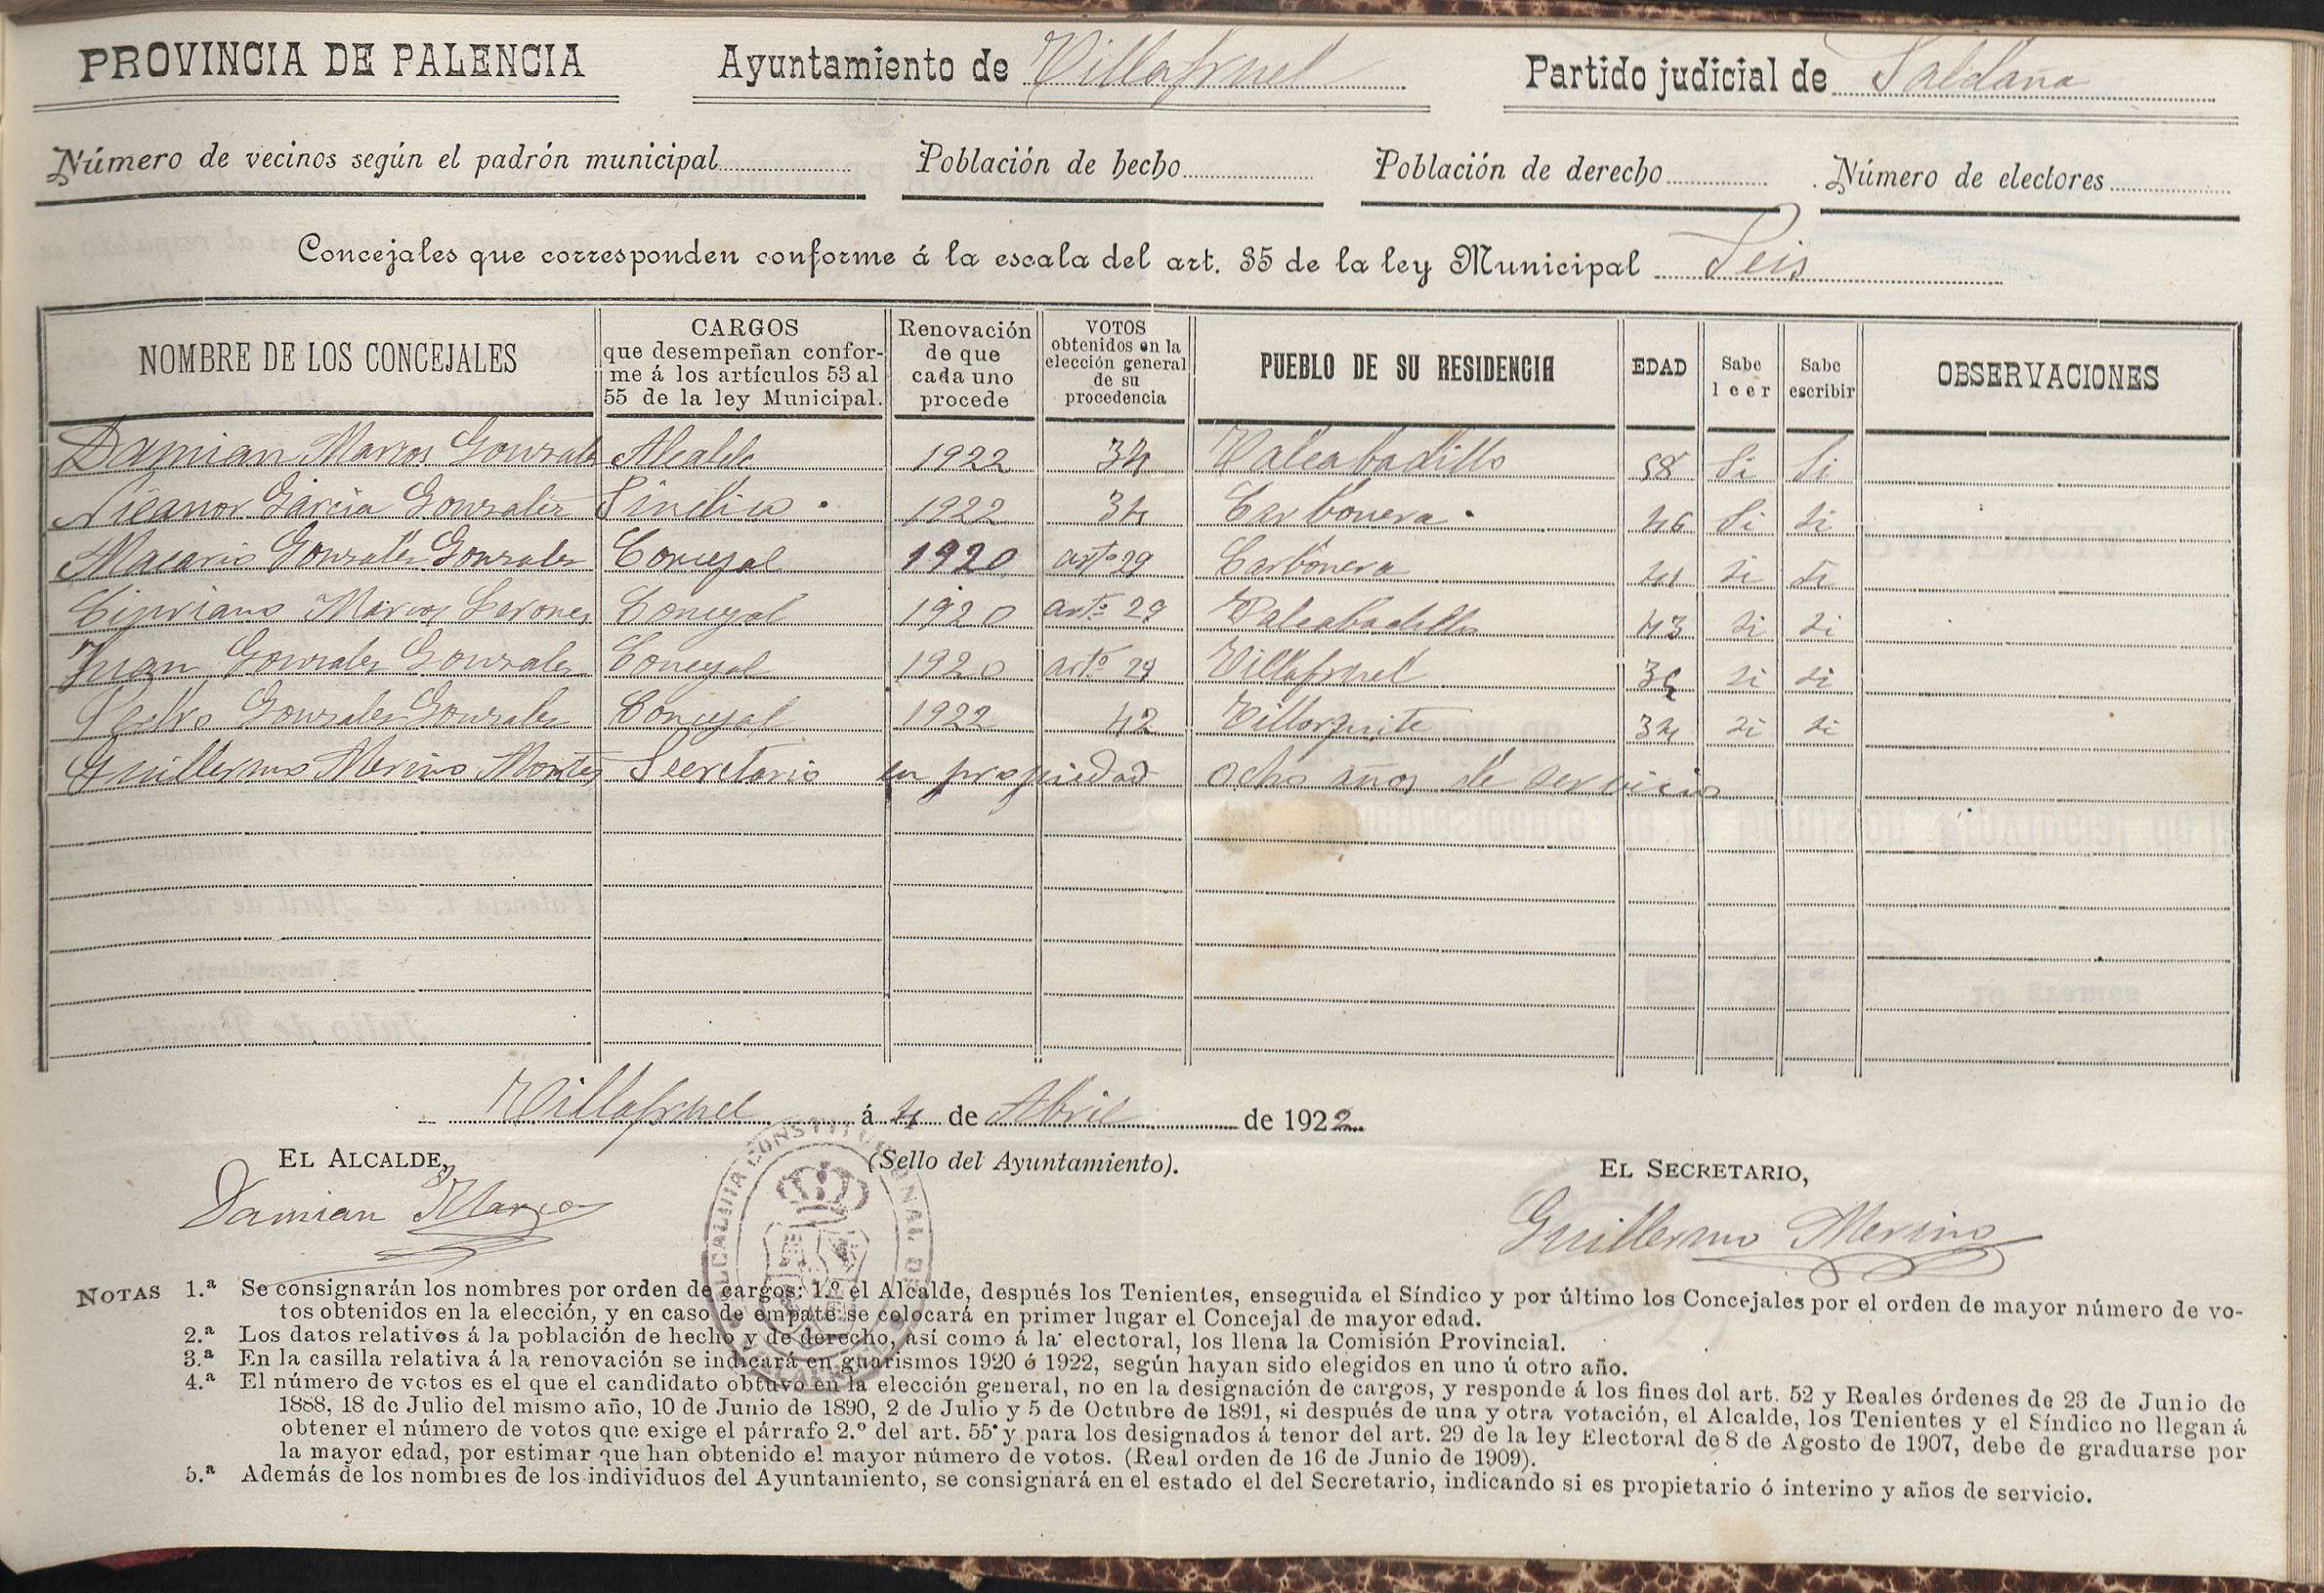 PROVINCIA DE PALENCIA Ayuntamiento de Villafruel Partido judicial de Saldaña
Número de vecinos según el padrón municipal Población de hecho Población de derecho Número de electores
Concejales que corresponden conforme á la escala del art. 35 de la ley Municipal Seis
NOMBRE DE LOS CONCEJALES CARGOS que desempeñan conforme á los artículos 53 al 55 de la ley Municipal. Renovación de que cada uno procede VOTOS obtenidos en la elección general de su procedencia PUEBLO DE SU RESIDENCIA EDAD Sabe leer Sabe escribir OBSERVACIONES
Damian Marcos Gonzalez Alcalde 1922 34 Valcabadillo 58 Si Si
Nicanor Garcia Gonzalez Sindico 1922 34 Carbonera 46 Si Si
Macario Gonzalez Gonzalez Concejal 1920 arto 29 Carbonera 41 Si Si
Cipriano Marcos Lerones Concejal 1920 arto 29 Valcabadillo 43 Si Si
Juan Gonzalez Gonzalez Concejal 1920 arto 29 Villafruel 36 Si Si
Pedro Gonzalez Gonzalez Concejal 1922 42 Villorquite 34 Si Si
Guillermo Merino Montes Secretario en propiedad ocho años de servicio
Villafruel á 4 de Abril de 1922
EL ALCALDE, (Sello del Ayuntamiento). EL SECRETARIO,
Damian Marcos Guillermo Merino
ALCALDIA CONSTITUCIONAL DE
NOTAS 1.ª Se consignarán los nombres por orden de cargos: 1.º el Alcalde, después los Tenientes, enseguida el Síndico y por último los Concejales por el orden de mayor número de vo-
tos obtenidos en la elección, y en caso de empate se colocará en primer lugar el Concejal de mayor edad.
2.ª Los datos relativos á la población de hecho y de derecho, así como á la electoral, los llena la Comisión Provincial.
3.ª En la casilla relativa á la renovación se indicará en guarismos 1920 ó 1922, según hayan sido elegidos en uno ú otro año.
4.ª El número de votos es el que el candidato obtuvo en la elección general, no en la designación de cargos, y responde á los fines del art. 52 y Reales órdenes de 23 de Junio de
1888, 18 de Julio del mismo año, 10 de Junio de 1890, 2 de Julio y 5 de Octubre de 1891, si después de una y otra votación, el Alcalde, los Tenientes y el Síndico no llegan á
obtener el número de votos que exige el párrafo 2.º del art. 55 y para los designados á tenor del art. 29 de la ley Electoral de 8 de Agosto de 1907, debe de graduarse por
la mayor edad, por estimar que han obtenido el mayor número de votos. (Real orden de 16 de Junio de 1909).
5.ª Además de los nombres de los individuos del Ayuntamiento, se consignará en el estado el del Secretario, indicando si es propietario ó interino y años de servicio.